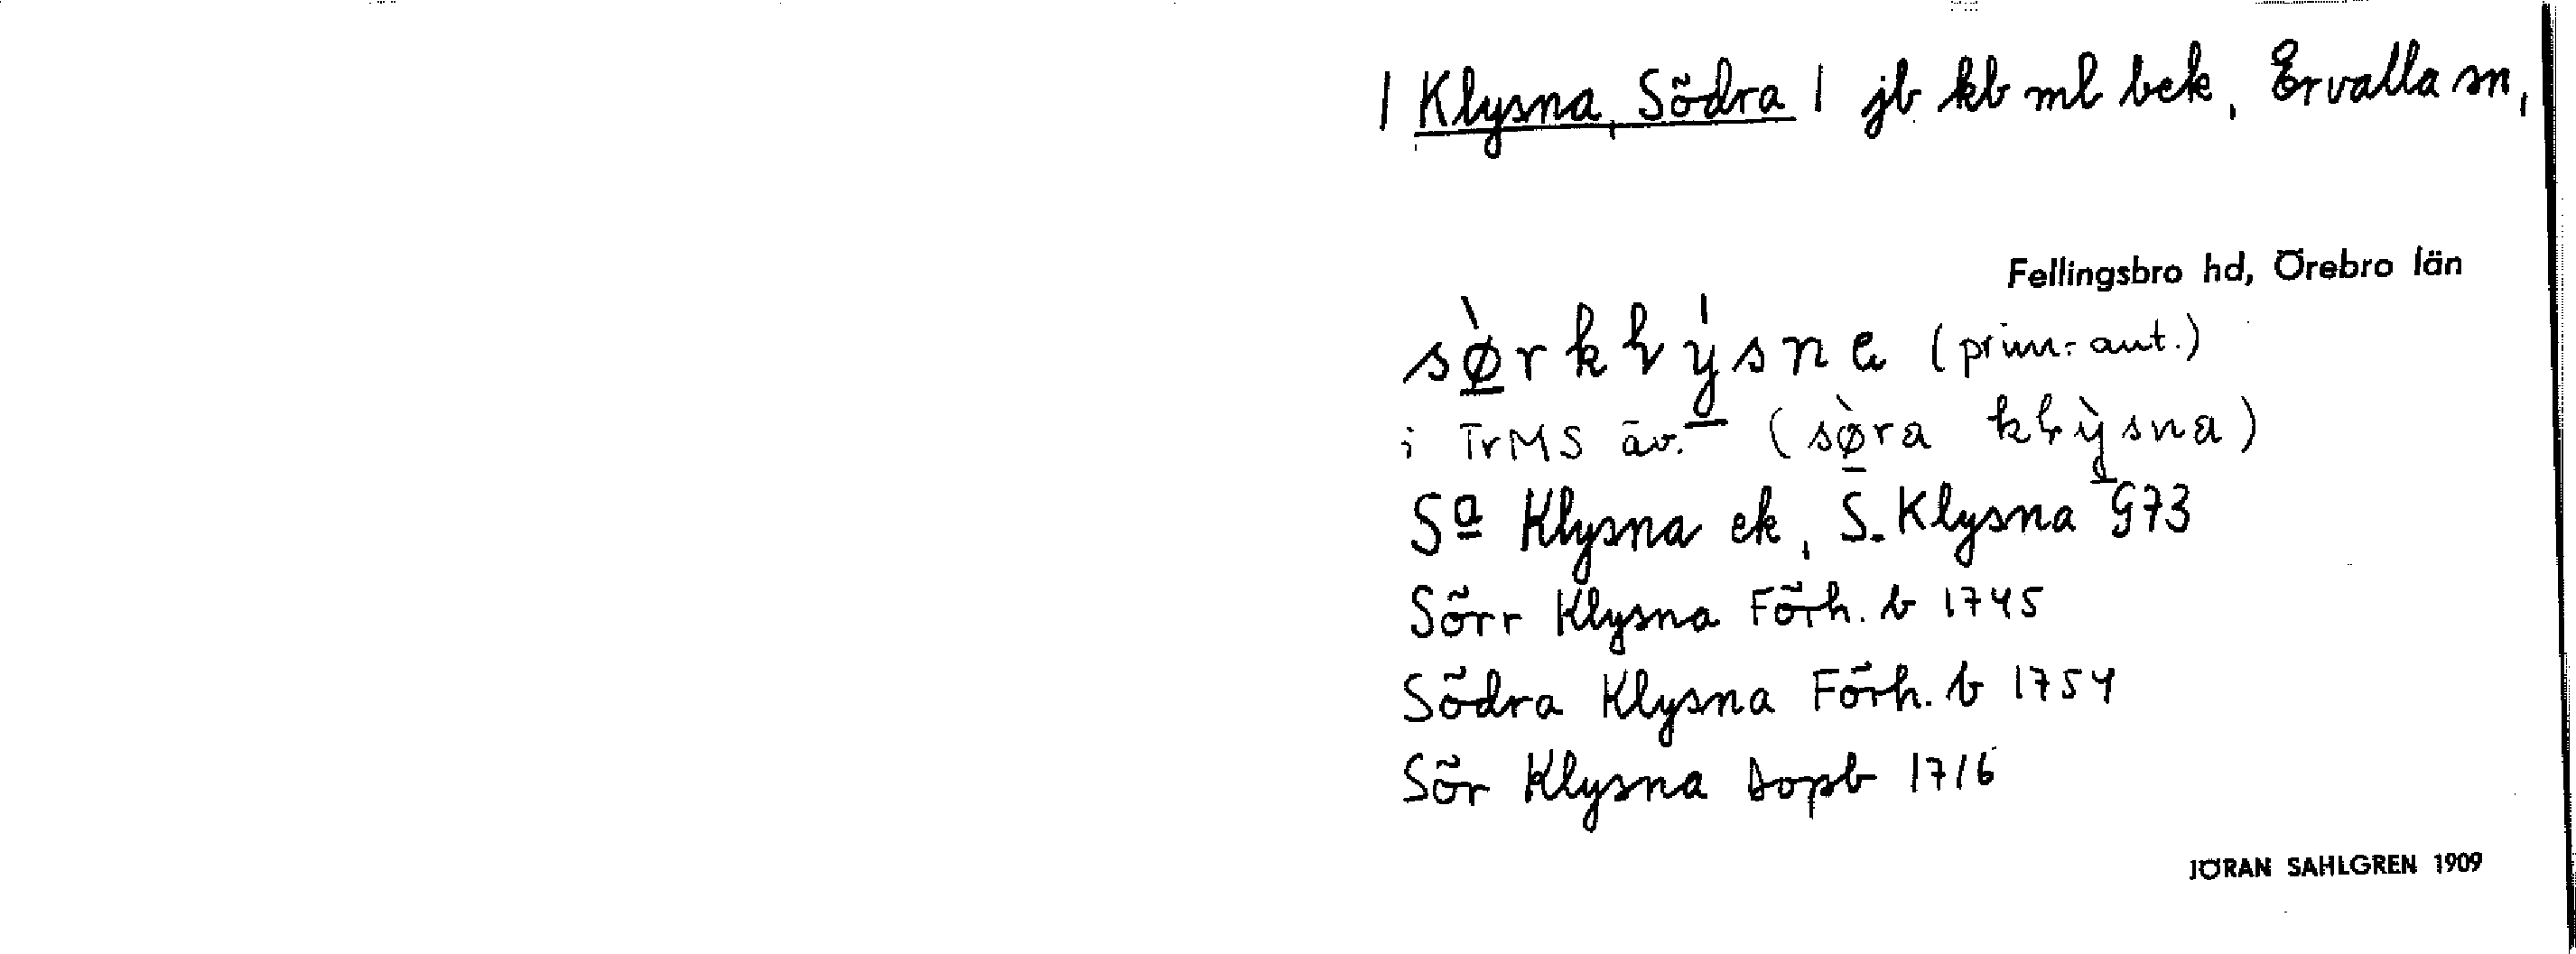 | Klysna, Södra | jb kb ml bek, Ervalla sn,
Fellingsbro hd, Örebro län
sø̀rkɫýsna (prim.-ant.)
i TrMS äv. (sø̀ra kɫỳsna)
Sª Klysna ek, S. Klysna G73
Sörr Klysna Förh. b 1745
Södra Klysna Förh. b 1754
Sör Klysna Dopb 1716
JÖRAN SAHLGREN 1909